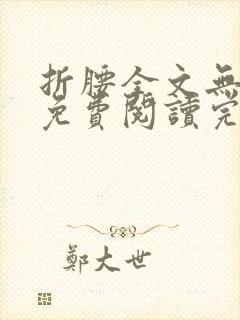 折腰全文無
免費閱讀完
鄭大世